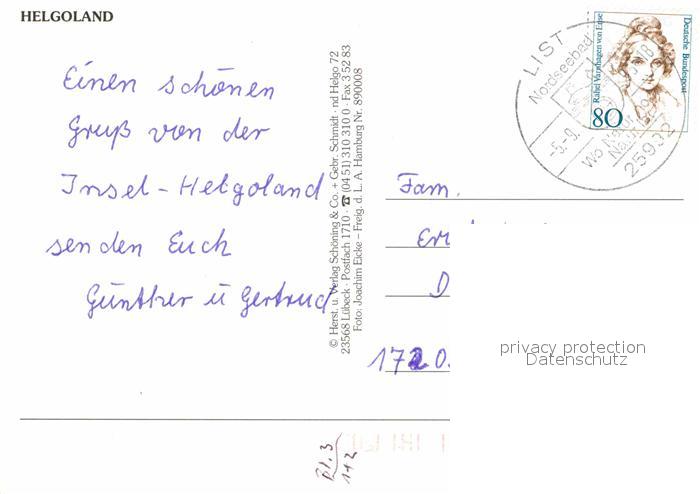 HELGOLAND
Einen schönen
Gruß von der
Insel-Helgoland
senden Euch
Günther u Gertrud
© Herst. u. Verlag Schöning & Co. + Gebr. Schmidt · nd Helgo 72
23568 Lübeck · Postfach 1710 · ☎ (04 51) 310 310 0 · Fax 3 52 83
Foto: Joachim Eicke – Freig. d. L. A. Hamburg Nr. 890008
LIST
Nordseebad
-5.-9.
25932
Rahel Varnhagen von Ense
Deutsche Bundespost
80
Fam.
D
privacy protection
Datenschutz